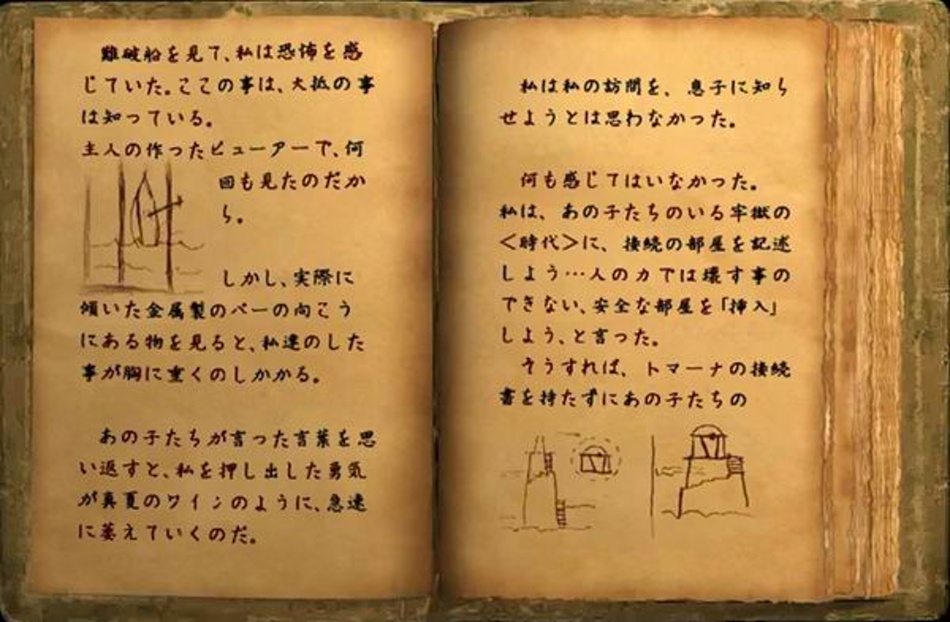 難破船を見て、私は恐怖を感
じていた。ここの事は、大抵の事
は知っている。
主人の作ったビューアーで、何
回も見たのだか
ら。
しかし、実際に
傾いた金属製のバーの向こう
にある物を見ると、私達のした
事が胸に重くのしかかる。
あの子たちが言った言葉を思
い返すと、私を押し出した勇気
が真夏のワインのように、急速
に萎えていくのだ。
私は私の訪問を、息子に知ら
せようとは思わなかった。
何も感じてはいなかった。
私は、あの子たちのいる牢獄の
<時代>に、接続の部屋を記述
しよう…人の力では壊す事の
できない、安全な部屋を「挿入」
しよう、と言った。
そうすれば、トマーナの接続
書を持たずにあの子たちの